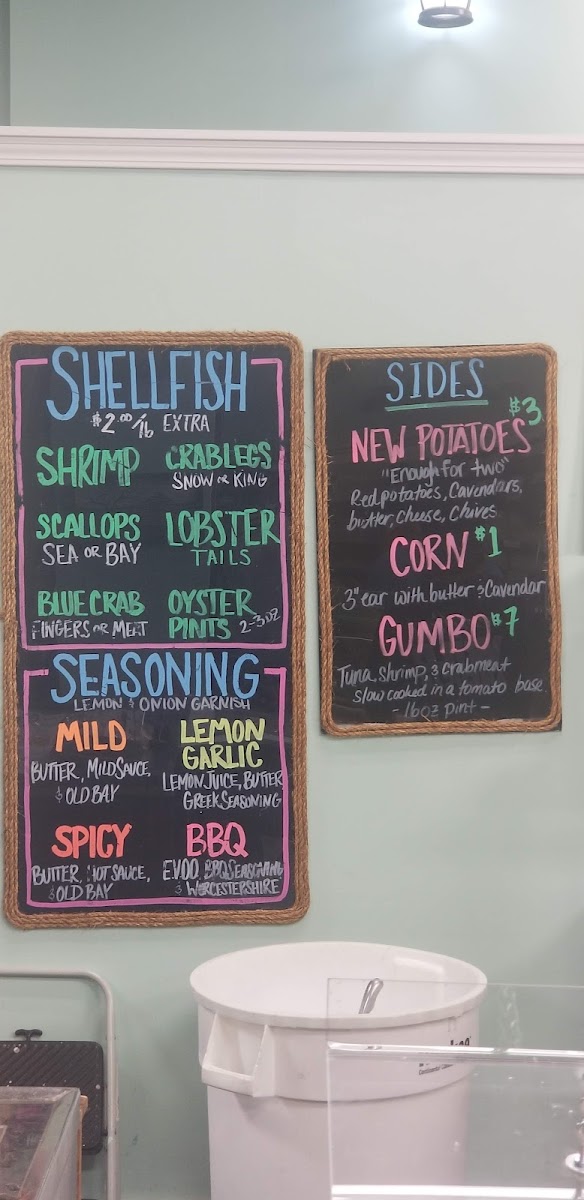 SHELLFISH
$2.00/lb EXTRA
SHRIMP
CRABLEGS
SNOW OR KING
SCALLOPS
SEA OR BAY
LOBSTER
TAILS
BLUE CRAB
FINGERS OR MEAT
OYSTER
PINTS 2-3 OZ
SEASONING
LEMON & ONION GARNISH
MILD
BUTTER, MILD SAUCE,
& OLD BAY
LEMON
GARLIC
LEMON JUICE, BUTTER
GREEK SEASONING
SPICY
BUTTER, HOT SAUCE,
& OLD BAY
BBQ
EVOO, BBQ SEASONING
& WORCESTERSHIRE
SIDES
NEW POTATOES $3
"Enough for two"
Red potatoes, Cavendars,
butter, cheese, Chives
CORN $1
3" ear with butter & Cavendar
GUMBO $7
Tuna, shrimp, & crabmeat
slow cooked in a tomato base.
- 16 oz pint -